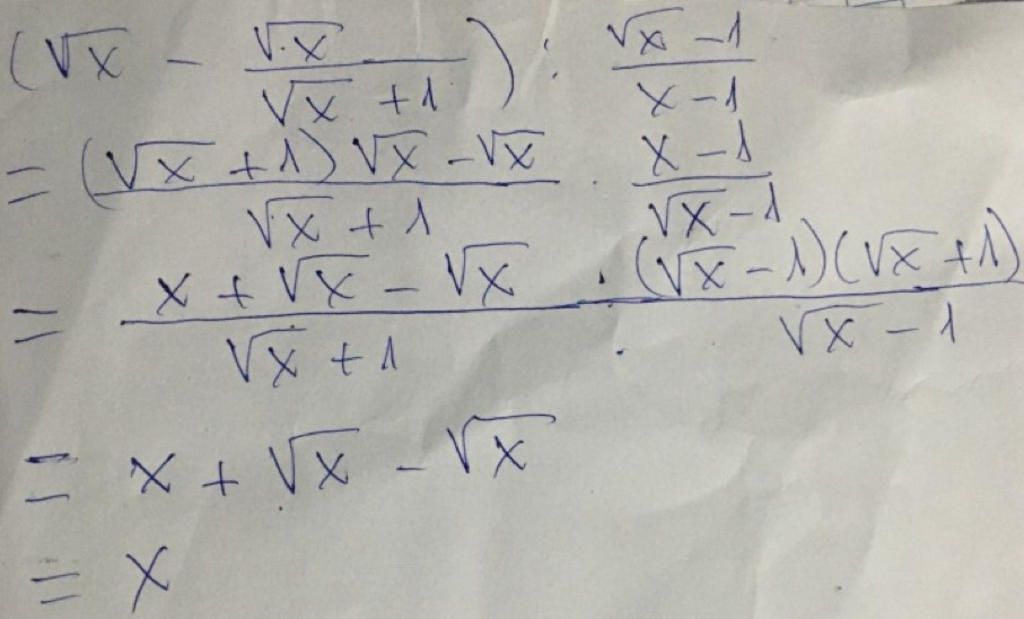 (√x - √x / (√x + 1)) : (√x - 1) / (x - 1)
= ((√x + 1) √x - √x) / (√x + 1) . (x - 1) / (√x - 1)
= (x + √x - √x) / (√x + 1) . (√x - 1)(√x + 1) / (√x - 1)
= x + √x - √x
= x